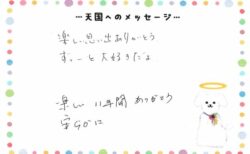 …天国へのメッセージ…
楽しい思い出ありがとう
ずぃーっと大好きだよ
楽しい11年間ありがとう